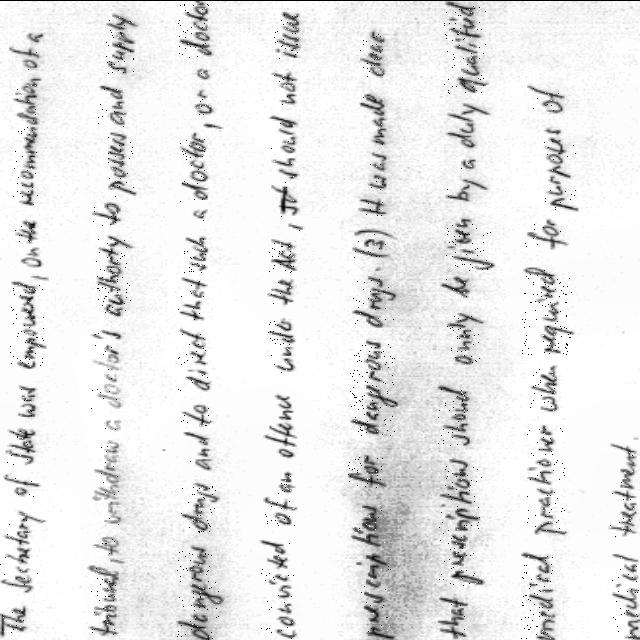 The Secretary of State was empowered, on the recommendation of a
tribunal, to withdraw a doctor's authorty to possess and supply
dangerous drugs and to direct that such a doctor, or a doctor
convicted of an offence under the Act, should not issue
prescriptions for dangerous drugs. (3) It was made clear
that prescriptions should only be given by a duly qualified
medical practioner when required for purposes of
medical treatment.